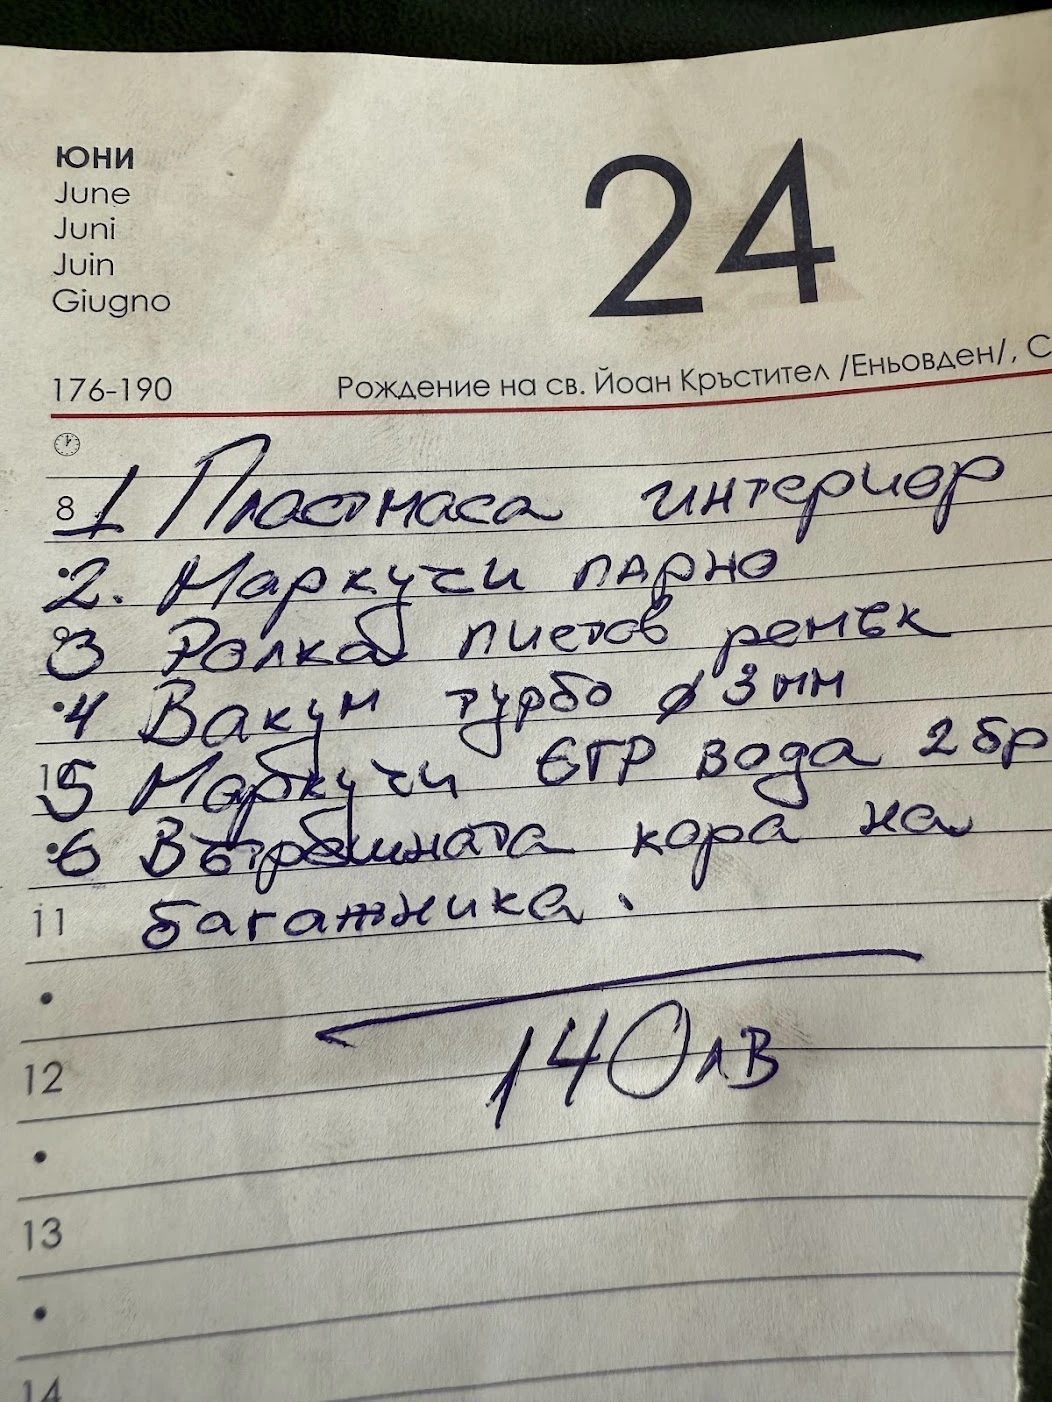 ЮНИ
June
Juni
Juin
Giugno
24
176-190
Рождение на св. Йоан Кръстител /Еньовден/, С
8
1 Пластмаса интериор
2. Маркучи парно
3 Ролка пистов ремък
4 Вакум турбо ø 3 мм
10
5 Маркучи ЕГР вода 2 бр
6 Вътрешната кора на
11 багажника.
140 лв
12
13
14